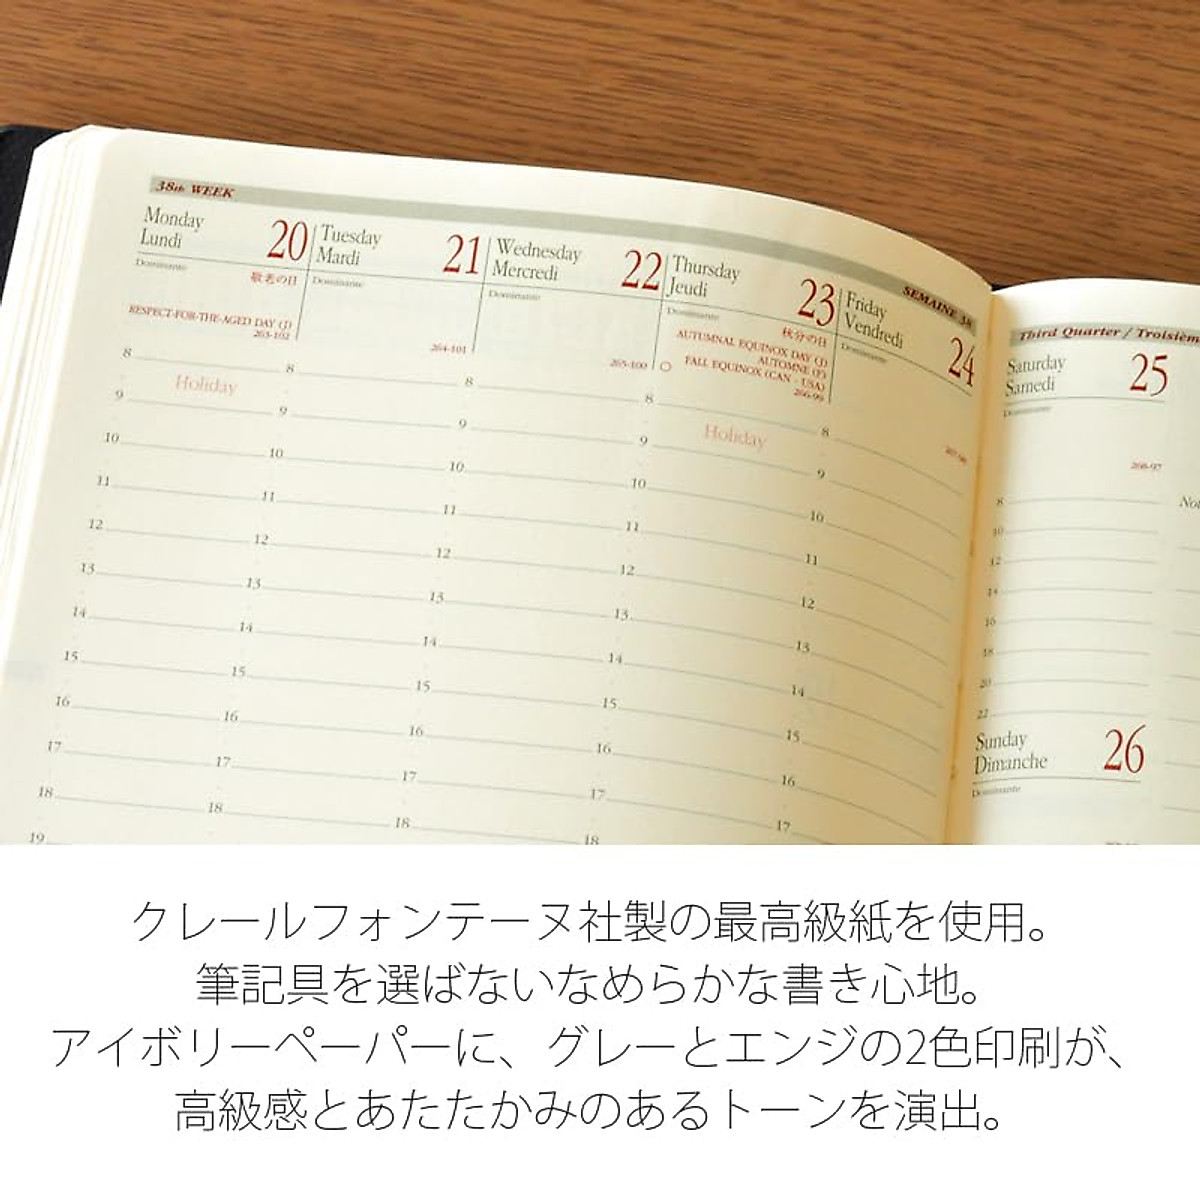 38th WEEK
SEMAINE 38
Monday
Lundi
20
Dominante
敬老の日
RESPECT-FOR-THE-AGED DAY (J)
263-102
Tuesday
Mardi
21
Dominante
264-101
Wednesday
Mercredi
22
Dominante
265-100
Thursday
Jeudi
23
Dominante
秋分の日
AUTUMNAL EQUINOX DAY (J)
AUTOMNE (F)
FALL EQUINOX (CAN - USA)
266-99
Friday
Vendredi
24
Dominante
8
Holiday
9
10
11
12
13
14
15
16
17
18
19
8
9
10
11
12
13
14
15
16
17
18
8
9
10
11
12
13
14
15
16
17
18
8
9
Holiday
10
11
12
13
14
15
16
17
18
8
9
10
11
12
13
14
15
16
17
Third Quarter / Troisièm
Saturday
Samedi
25
Dominante
268-97
8
10
12
14
16
18
20
22
Sunday
Dimanche
26
Dominante
クレールフォンテーヌ社製の最高級紙を使用。
筆記具を選ばないなめらかな書き心地。
アイボリーペーパーに、グレーとエンジの2色印刷が、
高級感とあたたかみのあるトーンを演出。